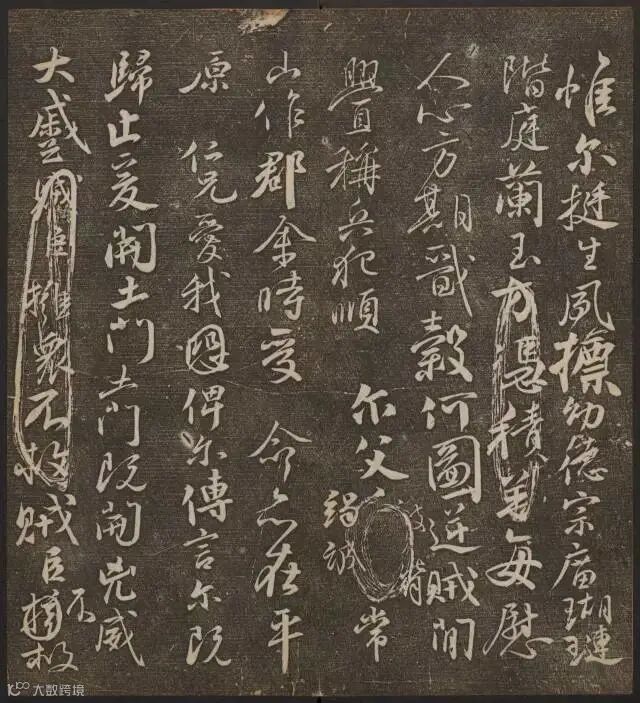 惟尔挺生夙標幼德宗廟瑚璉
階庭蘭玉方憑積善每慰
人心方期戩穀何圖逆賊閒
釁稱兵犯順 尔父竭誠常
山作郡余時受 命亦在平
原 仁兄愛我恐俾尔傳言尔既
歸止爰開土門土門既開兇威
大蹙賊臣擁衆不救賊臣擁不救
大数跨境